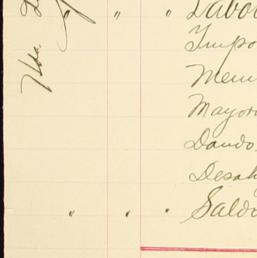 " " Labo
Impo
Mem
Mayor
Dando
Desah
" " " Saldo